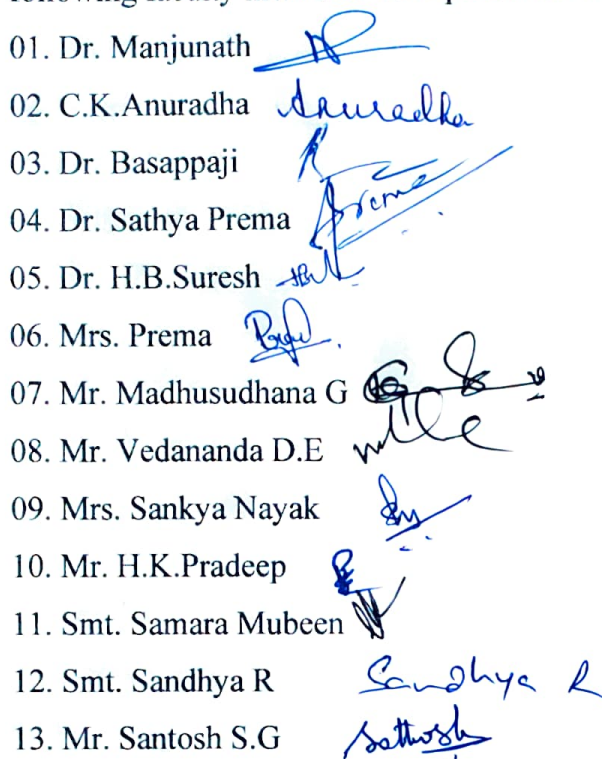 01. Dr. Manjunath
02. C.K.Anuradha Anuradha
03. Dr. Basappaji
04. Dr. Sathya Prema Prema
05. Dr. H.B.Suresh
06. Mrs. Prema
07. Mr. Madhusudhana G
08. Mr. Vedananda D.E
09. Mrs. Sankya Nayak
10. Mr. H.K.Pradeep
11. Smt. Samara Mubeen
12. Smt. Sandhya R Sandhya R
13. Mr. Santosh S.G